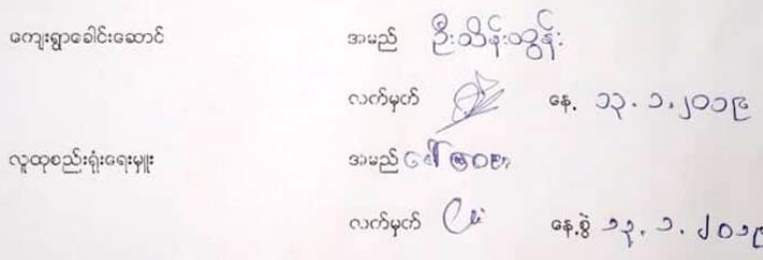 ကျေးရွာခေါင်းဆောင် အမည် ဦးသိန်းထွန်း
လက်မှတ် နေ့ ၁၃.၁.၂၀၁၉
လူထုစည်းရုံးရေးမှူး အမည် ဒေါ်
လက်မှတ် နေ့စွဲ ၁၃.၁.၂၀၁၉